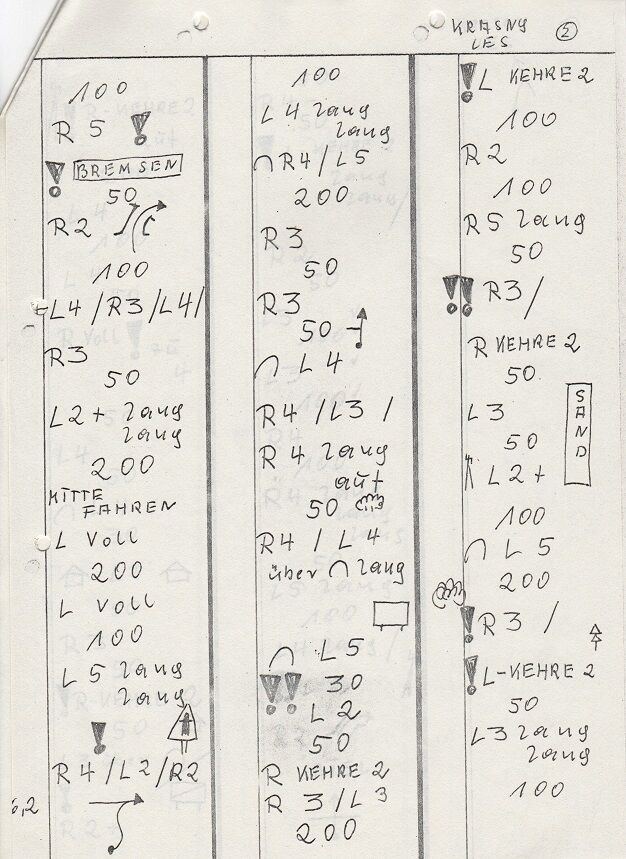 KRASNY
LES
2
100
R 5 !
! BREMSEN
50
R2
100
L4 / R3 / L4 /
R3
50
L2 + lang
lang
200
MITTE
FAHREN
L Voll
200
L Voll
100
L 5 lang
lang
!
R4 / L2 / R2
6,2
100
L 4 lang
lang
∩ R4 / L5
200
R3
50
R3
50
∩ L 4
R4 / L3 /
R 4 lang
auf
50
R4 / L 4
über ∩ lang
∩ L5
!! 30
L 2
50
R KEHRE 2
R 3 / L 3
200
! L KEHRE 2
100
R2
100
R5 lang
50
!! R3 /
R KEHRE 2
50
L3
SAND
50
L2 +
100
∩ L 5
200
! R3 /
! L-KEHRE 2
50
L3 lang
lang
100